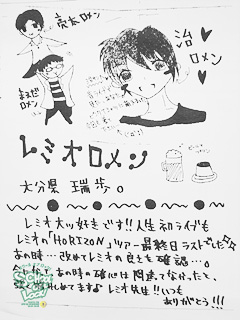 亮太
ロメン
治
ロメン
まえだ
ロメン
レミオロメン
大分県 瑞歩。
レミオ大ッ好きです!!人生初ライブも
レミオの「HORIZON」ツアー最終日ラストでした
あの時…改めてレミオの良さを確認…。
あの時の確信は間違ってなかったと、
ますよレミオ先生!!いつも
ありがとう!!!